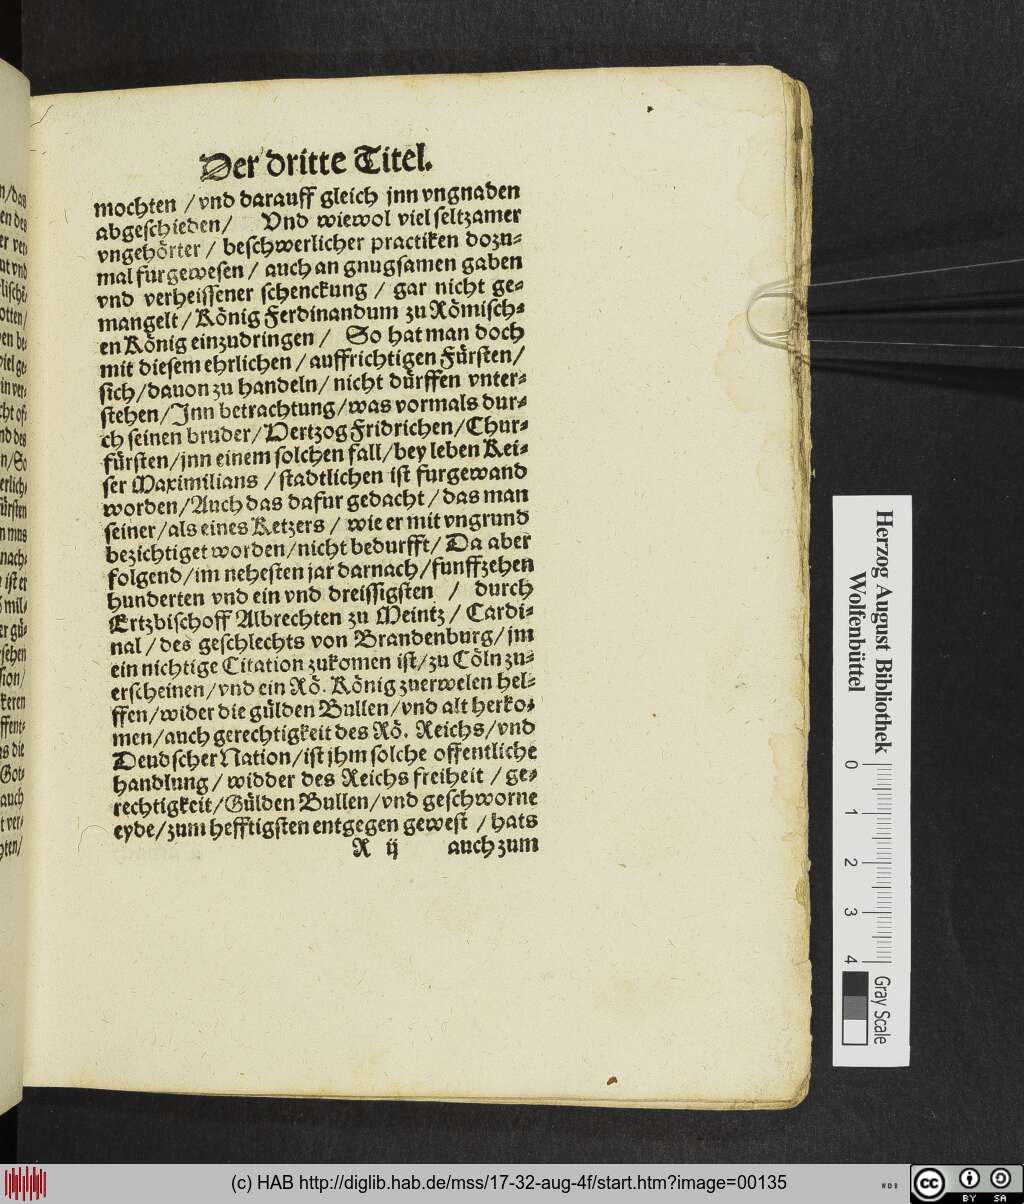 Der dritte Titel.
mochten / vnd darauff gleich jnn vngnaden
abgeschieden / Vnd wiewol viel seltzamer
vngehörter / beschwerlicher practiken dozu-
mal furgewesen / auch an gnugsamen gaben
vnd verheissener schenckung / gar nicht ge-
mangelt / König Ferdinandum zu Römisch-
en König einzudringen / So hat man doch
mit diesem ehrlichen / auffrichtigen Fürsten /
sich / dauon zu handeln / nicht dürffen vnter-
stehen / Inn betrachtung / was vormals dur-
ch seinen bruder / Hertzog Fridrichen / Chur-
fürsten / jnn einem solchen fall / bey leben Kei-
ser Maximilians / stadtlichen ist furgewand
worden / Auch das dafur gedacht / das man
seiner / als eines Ketzers / wie er mit vngrund
bezichtiget worden / nicht bedurfft / Da aber
folgend / im nehesten jar darnach / funffzehen
hunderten vnd ein vnd dreissigsten / durch
Ertzbischoff Albrechten zu Meintz / Cardi-
nal / des geschlechts von Brandenburg / jm
ein nichtige Citation zukomen ist / zu Cöln zu-
erscheinen / vnd ein Rö. König zuerwelen hel-
ffen / wider die gülden Bullen / vnd alt herko-
men / auch gerechtigkeit des Rö. Reichs / vnd
Deudscher Nation / ist jhm solche offentliche
handlung / widder des Reichs freiheit / ge-
rechtigkeit / Gülden Bullen / vnd geschworne
eyde / zum hefftigsten entgegen gewest / hats
R ij auch zum
Herzog August Bibliothek
Wolfenbüttel
0 1 2 3 4
Gray Scale
(c) HAB http://diglib.hab.de/mss/17-32-aug-4f/start.htm?image=00135
WDB
cc BY SA